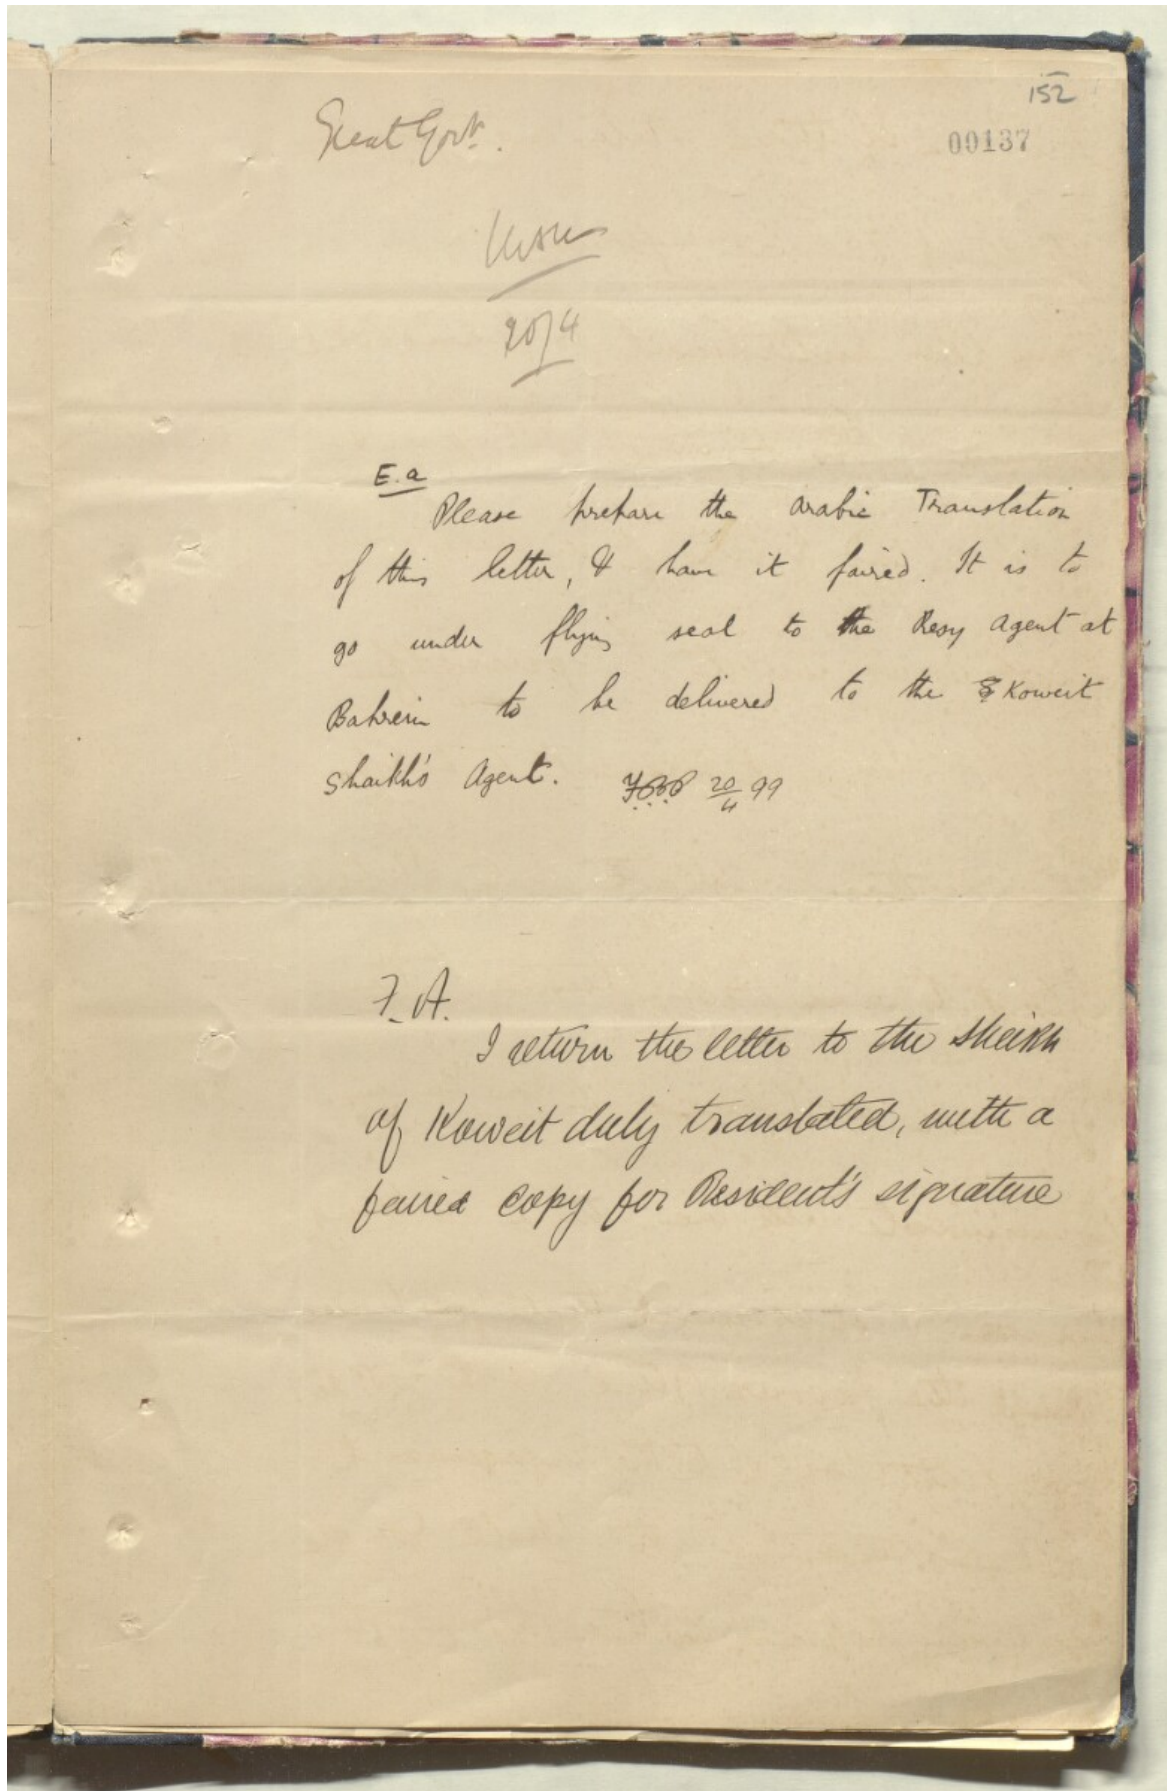 152
00137
Great Govt.
20/4
E.a
Please prepare the arabic Translation
of this letter, & have it faired. It is to
go under flying seal to the Resy Agent at
Bahrein to be delivered to the Koweit
Shaikh's Agent. 20/4 99
F.A.
I return the letter to the Sheikh
of Koweit duly translated, with a
faired copy for Resident's signature